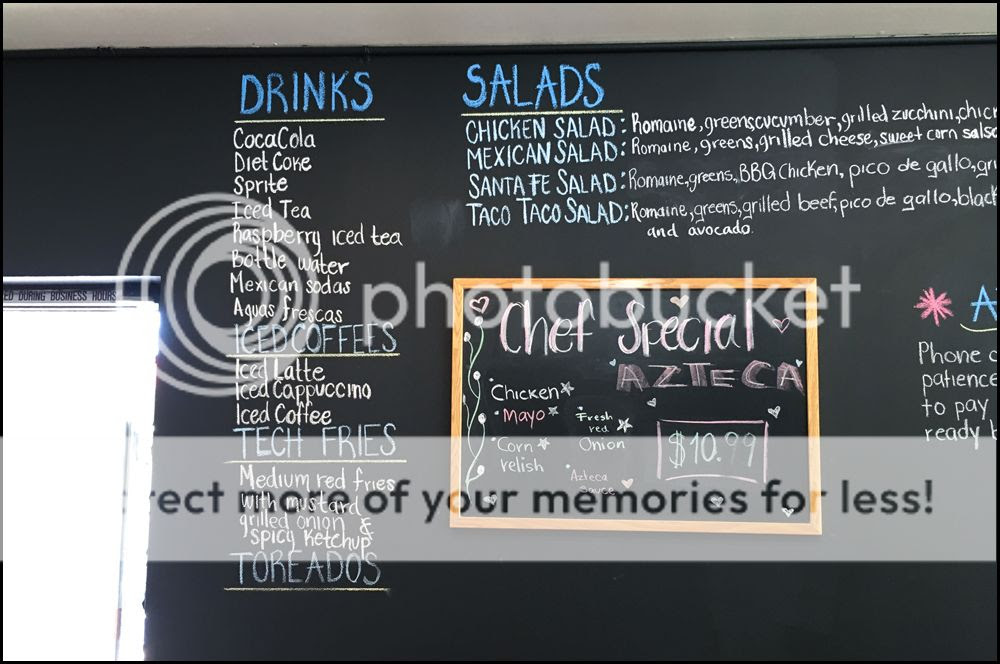 DRINKS
CocaCola
Diet Coke
Sprite
Iced Tea
Raspberry iced tea
Bottle water
Mexican sodas
Aguas frescas
ICED COFFEES
Iced Latte
Iced Cappuccino
Iced Coffee
TECH FRIES
Medium red fries
with mustard
grilled onion &
spicy ketchup
TOREADOS
SALADS
CHICKEN SALAD: Romaine, greens, cucumber, grilled zucchini, chic
MEXICAN SALAD: Romaine, greens, grilled cheese, sweet corn salsa
SANTA FE SALAD: Romaine, greens, BBQ Chicken, pico de gallo, gri
TACO TACO SALAD: Romaine, greens, grilled beef, pico de gallo, black
and avocado.
Chef Special
AZTECA
Chicken
Mayo
Corn
relish
Fresh
red
Onion
Azteca
Sauce
$10.99
A
Phone
patience
to pay
ready
ED DURING BUSINESS HOURS
photobucket
rect more of your memories for less!